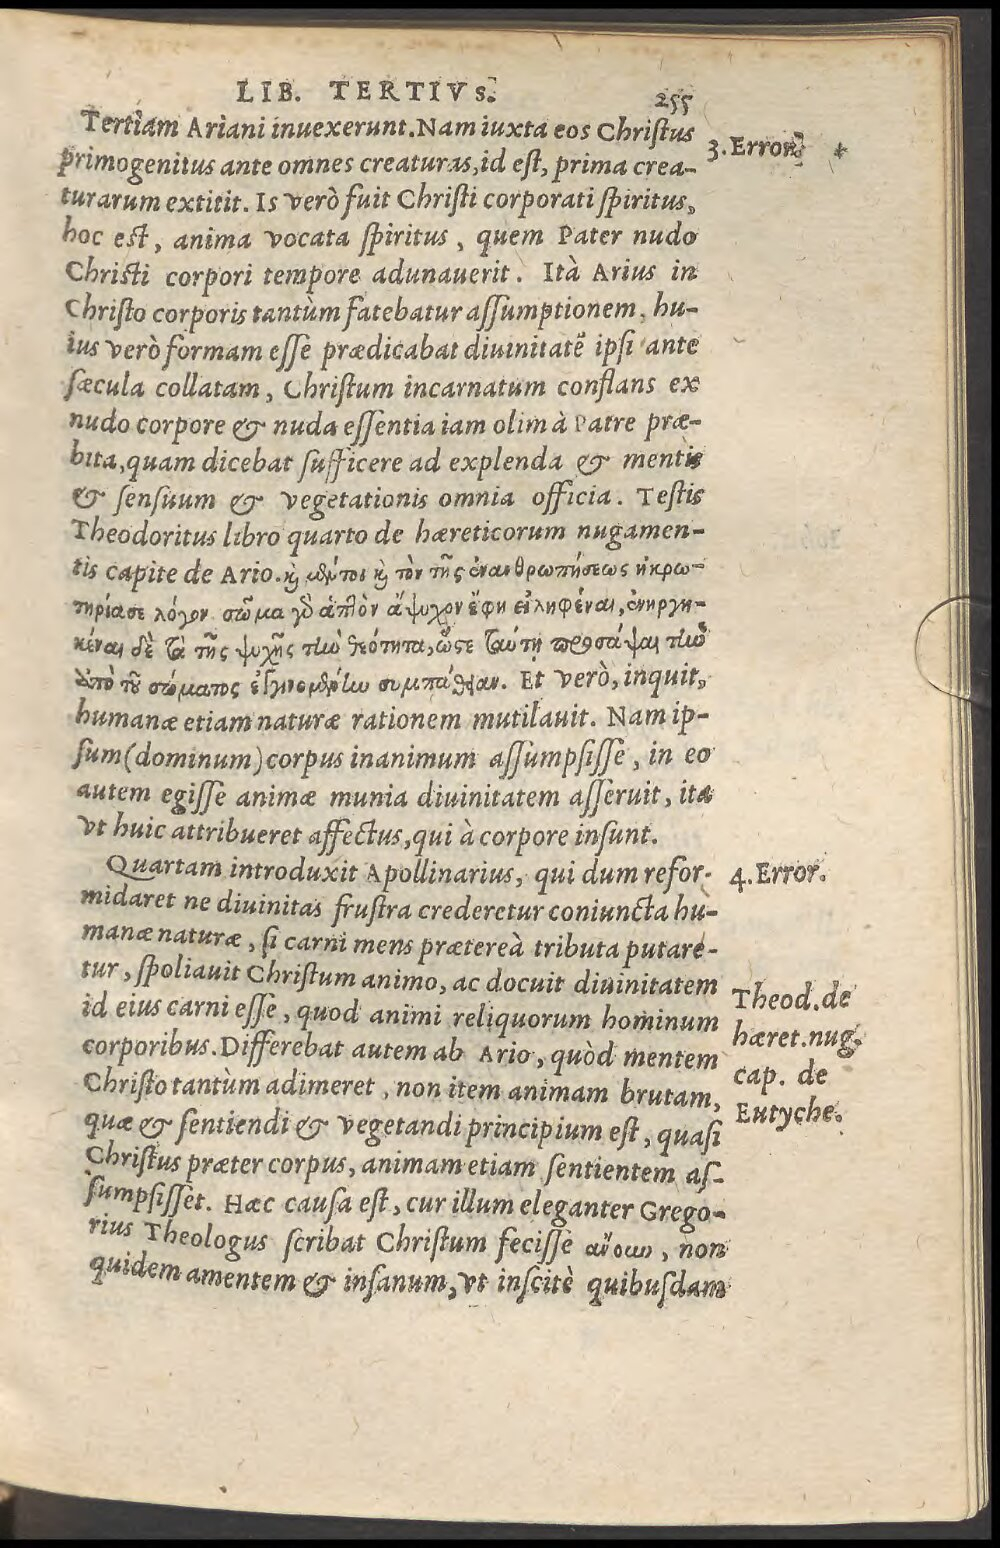 LIB. TERTIVS.
255
Tertiam Ariani inuexerunt. Nam iuxta eos Christus
3. Error.
primogenitus ante omnes creaturas, id est, prima crea-
turarum extitit. Is verò fuit Christi corporati spiritus,
hoc est, anima vocata spiritus, quem Pater nudo
Christi corpori tempore adunauerit. Ità Arius in
Christo corporis tantùm fatebatur assumptionem, hu-
ius verò formam esse prædicabat diuinitatẽ ipsi ante
sæcula collatam, Christum incarnatum conflans ex
nudo corpore & nuda essentia iam olim à Patre præ-
bita, quam dicebat sufficere ad explenda & mentis
& sensuum & vegetationis omnia officia. Testis
Theodoritus libro quarto de hæreticorum nugamen-
tis capite de Ario. καὶ μέντοι καὶ τὸν τῆς ἐνανθρωπήσεως ἠκρω-
τηρίασε λόγον. σῶμα γὸ ἁπλὸν ἄψυχον ἔφη εἰληφέναι, ἐνηργη-
κέναι δὲ τὰ τῆς ψυχῆς τὴν θεότητα, ὥστε ταύτῃ προσάψαι τὴν
ἀπὸ τοῦ σώματος συμπάθειαν. Et verò, inquit,
humanæ etiam naturæ rationem mutilauit. Nam ip-
sum (dominum) corpus inanimum assumpsisse, in eo
autem egisse animæ munia diuinitatem asseruit, ita
vt huic attribueret affectus, qui à corpore insunt.
Quartam introduxit Apollinarius, qui dum refor-
4. Error.
midaret ne diuinitas frustra crederetur coniuncta hu-
manæ naturæ, si carni mens prætereà tributa putare-
tur, spoliauit Christum animo, ac docuit diuinitatem
id eius carni esse, quod animi reliquorum hominum
corporibus. Differebat autem ab Ario, quòd mentem
Christo tantùm adimeret, non item animam brutam,
quæ & sentiendi & vegetandi principium est, quasi
Christus præter corpus, animam etiam sentientem as-
sumpsisset. Hæc causa est, cur illum eleganter Grego-
rius Theologus scribat Christum fecisse ἄνουν, non
quidem amentem & insanum, vt inscitè quibusdam
Theod. de
hæret. nug.
cap. de
Eutyche.